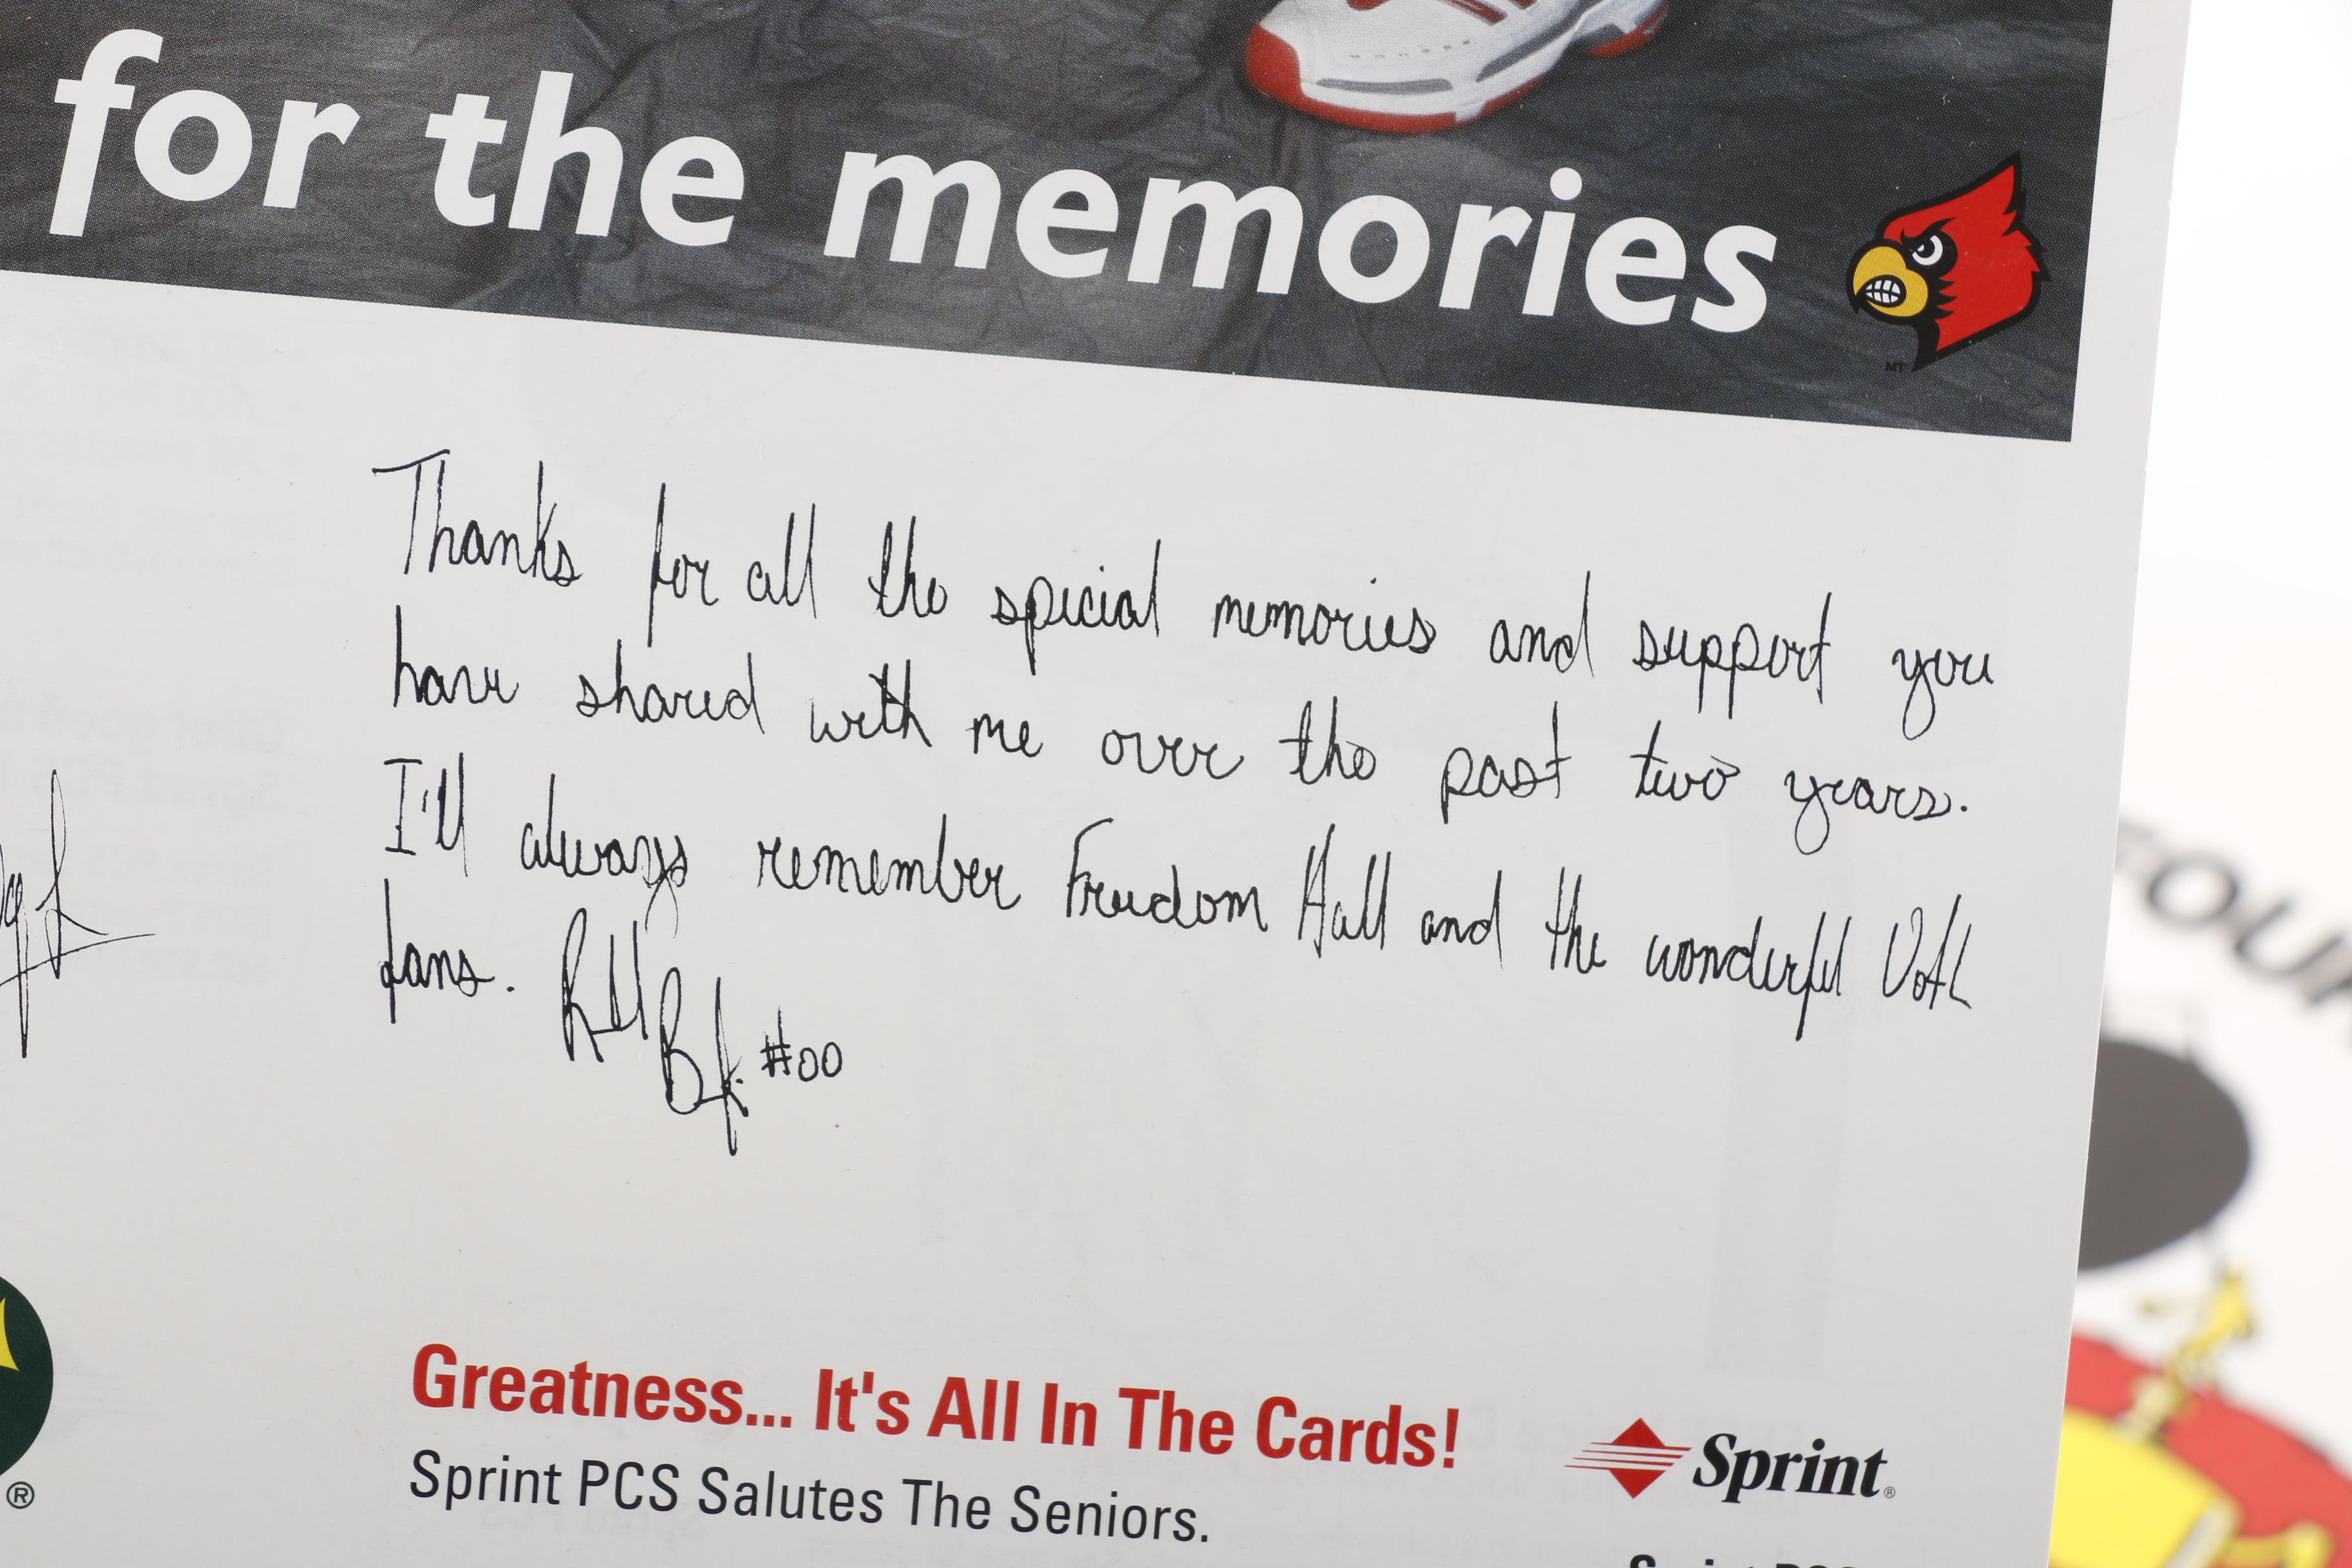 for the memories
MT
Thanks for all the special memories and support you
have shared with me over the past two years.
I'll always remember Freedom Hall and the wonderful UofL
fans.
#00
Greatness... It's All In The Cards!
Sprint PCS Salutes The Seniors.
Sprint®
®